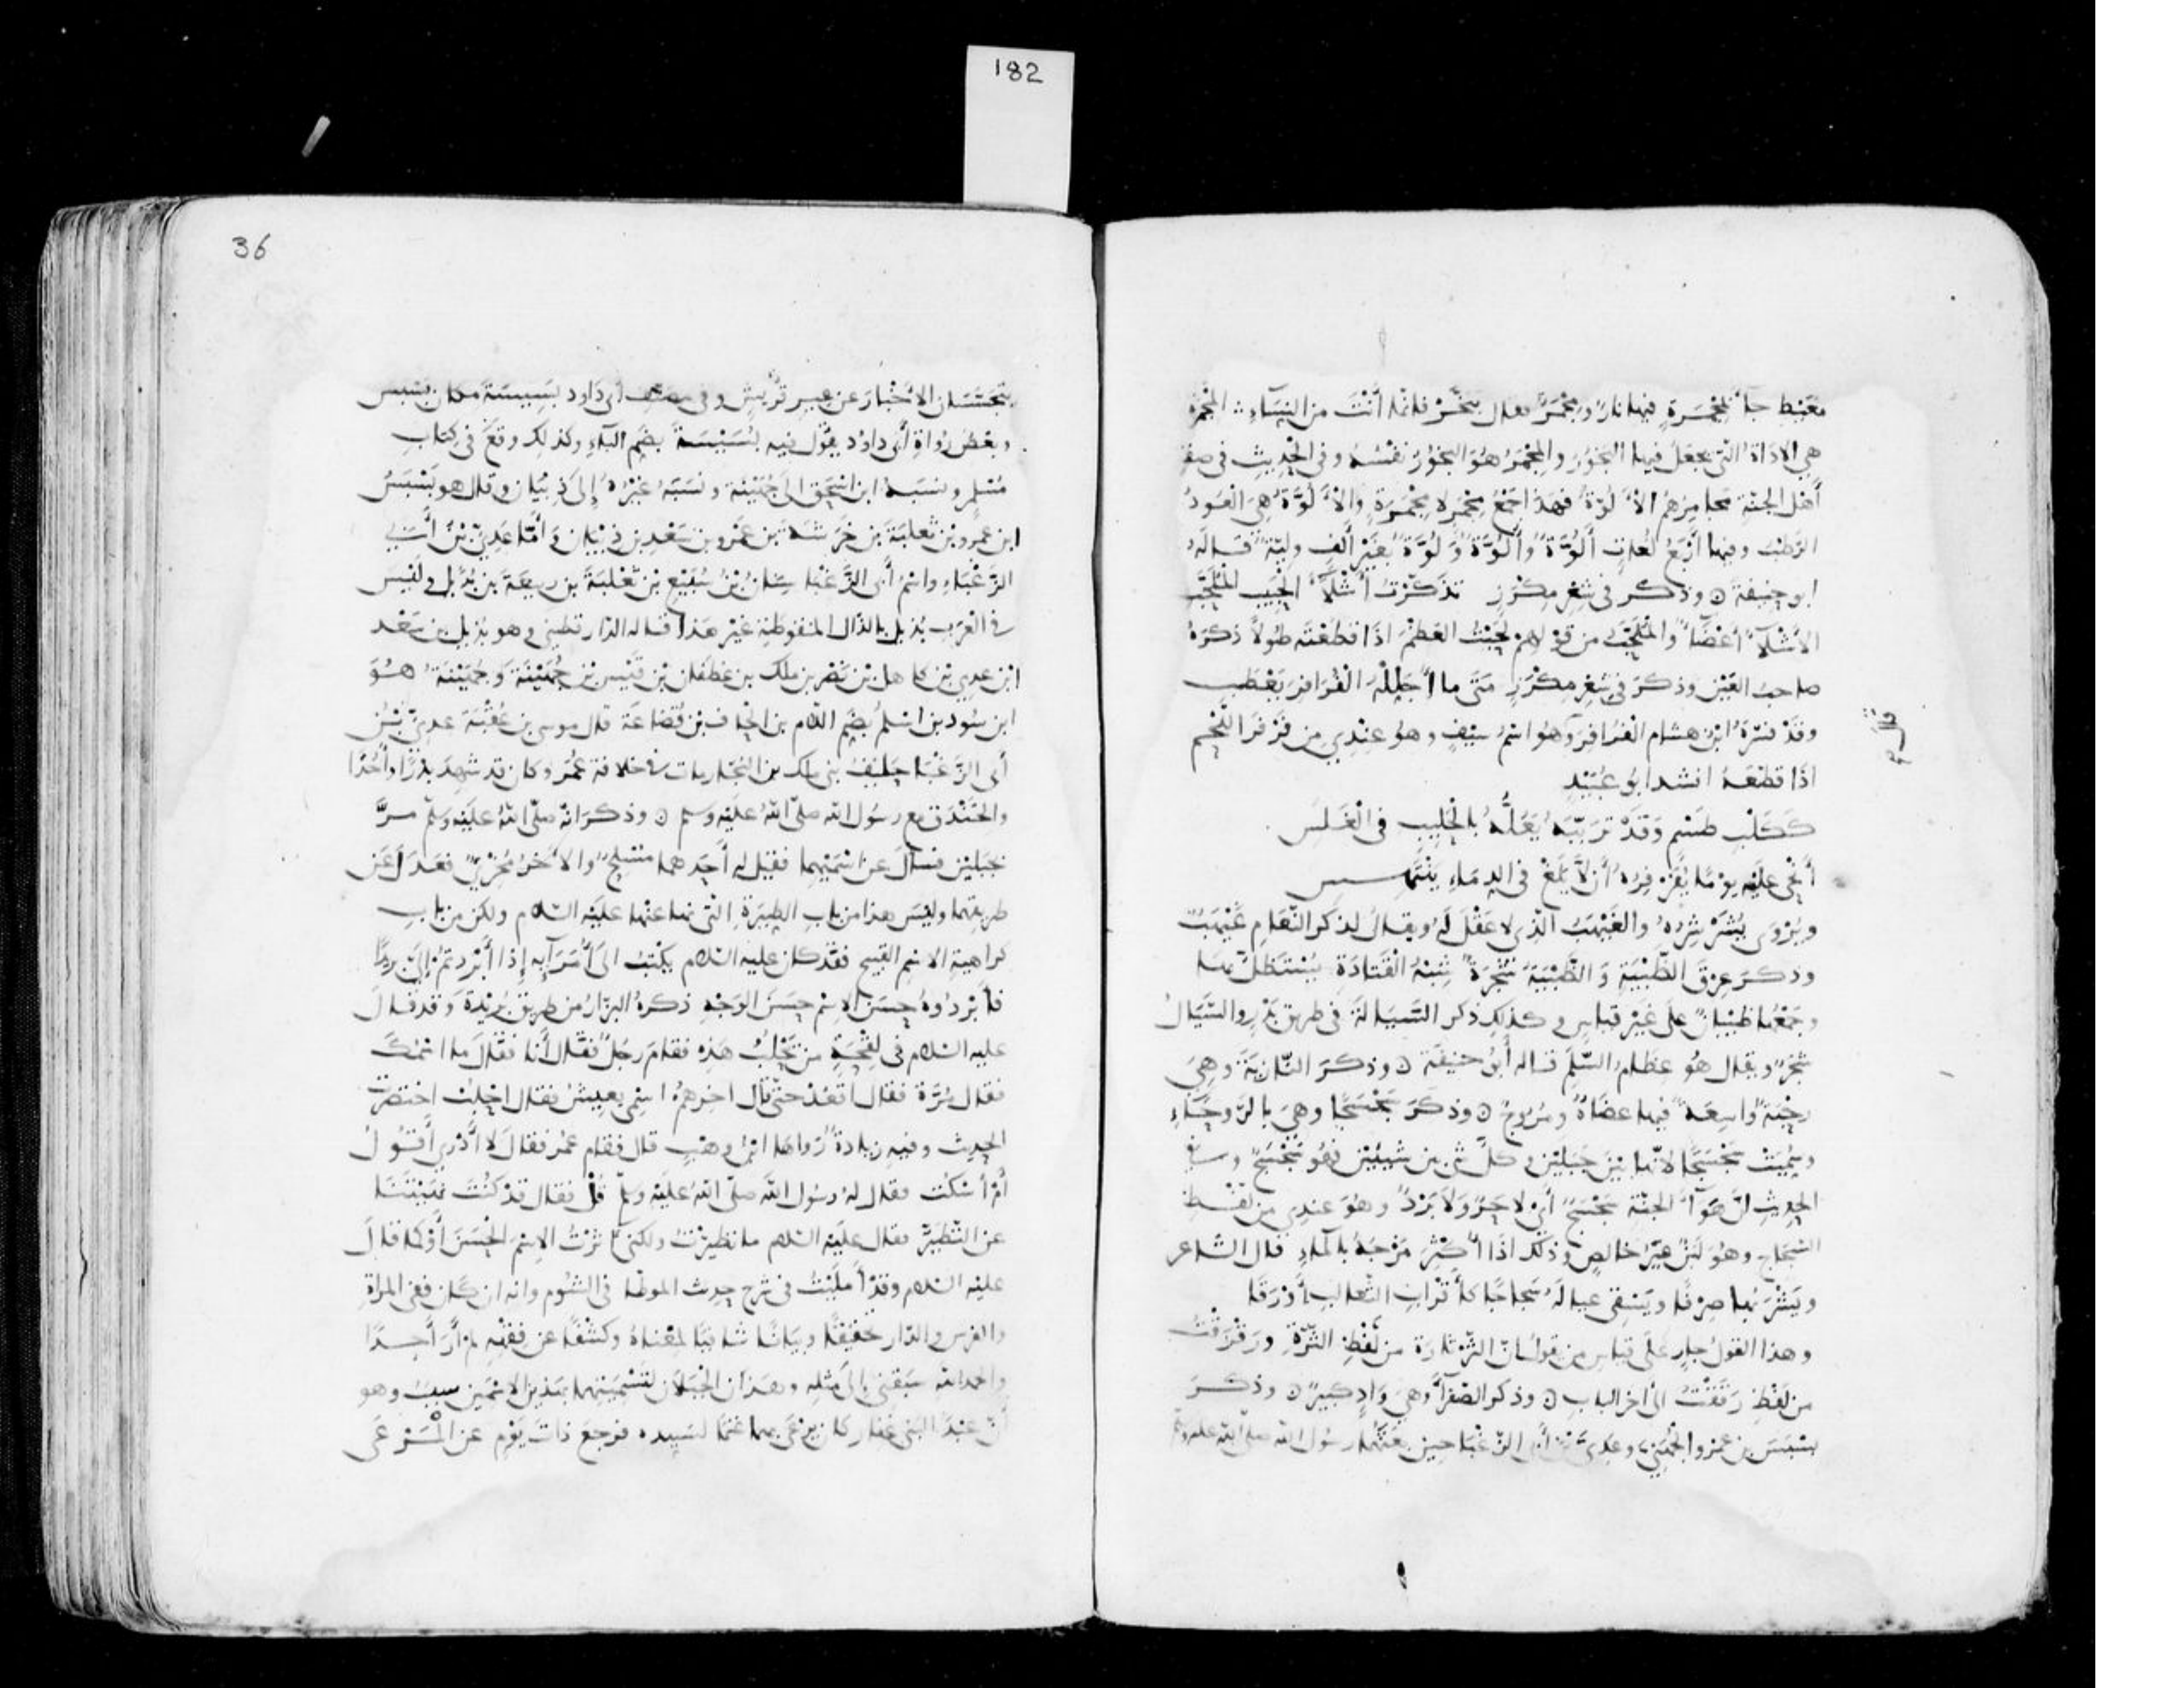 182
معيط جاء بمجمرة فيها نار ومجمر فقال تجمر فانما أنت من النساء المجمرة
هي الاداة التى يجعل فيها البخور والمجمر هو البخور نفسه وفى الحديث فى صفة
أهل الجنة مجامرهم الألوة فهذا جمع مجمر لا مجمرة والألوة هي العود
الرطب وفيها أربع لغات ألوة وألوة ولوة بغير ألف ولية قاله
ابو حنيفة وذكر فى شعر مكرز تذكرت أشلاء الحبيب الملحب
الأشلاء أعضاء والملحب من قولهم لحبت العظم اذا قطعته طولا ذكره
صاحب العين وذكر فى شعر مكرز متى ما أجلله الفرافر يعطب
وقد فسره ابن هشام الفرافر وهو اسم سيف وهو عندي من فرفر اللحم
اذا قطعه انشد ابو عبيد
ككلب طسم وقد تربّبه يعله بالحليب فى الغلس
أنحى عليه يوما يفرفره أن لا يلغ فى الدماء ينتهس
ويروى يشرشره والغيهب الذى لا عقل له ويقال لذكر النعام غيهب
وذكر عرق الظبية والظبية شجرة شبه القتادة يستظل بها
وجمعها ظبيان على غير قياس وكذلك ذكر السيالة فى طريق بدر والسيال
شجر ويقال هو عظام السلم قاله أبو حنيفة وذكر النازية وهي
رحبة واسعة فيها عضاه ومروج وذكر سجسجا وهي بالروحاء
وسميت سجسجا لانها بين جبلين وكل شى بين شيئين فهو سجسج وفى
الحديث ان هواء الجنة سجسج أي لا حر ولا برد وهو عندي من لفظ
السجاج وهو لبن غير خالص وذلك اذا أكثر مزجه بالماء قال الشاعر
ويشربها صرفا ويسقى عياله سجاجا كأقراب الثعالب أورقا
وهذا القول جار على قياس من قول ان الثرثارة من لفظ الثرة ورقرقت
من لفظ رققت الى اخر الباب وذكر الصفراء وهي واد كبير وذكر
بسبس بن عمرو الجهنى وعدى بن أبى الزغبا حين بعثهما رسول الله صلى الله عليه وسلم
36
يتجسسان الاخبار عن عير قريش وفى مصنف أبى داود بسيسة مكان بسبس
وبعض رواة أبى داود يقول فيه بسيسة بضم الباء وكذلك وقع فى كتاب
مسلم ونسبه ابن اسحق الى جهينة ونسبه غيره إلى ذبيان وقال هو بسبس
ابن عمرو بن ثعلبة بن خرشة بن عمرو بن سعد بن ذبيان وأما عدي بن أبى
الزغباء واسم أبى الزغبا سنان بن سبيع بن ثعلبة بن ربيعة بن بذيل وليس
فى العرب بذيل بالذال المنقوطة غير هذا قاله الدارقطني وهو بذيل بن سعد
ابن عدي بن كاهل بن نصر بن ملك بن غطفان بن قيس بن جهينة وجهينة هو
ابن سود بن اسلم بضم اللام بن الحاف بن قضاعة قال موسى بن عقبة عدي بن
أبى الزغبا حليف بنى ملك بن النجار مات فى خلافة عمر وكان قد شهد بدرا وأحدا
والخندق مع رسول الله صلى الله عليه وسلم وذكر انه صلى الله عليه وسلم مر
بجبلين فسأل عن اسميهما فقيل له أحدهما مسلح والآخر مخرئ فعدل عن
طريقهما وليس هذا من باب الطيرة التى نها عنها عليه السلام ولكن من باب
كراهية الاسم القبيح فقد كان عليه السلام يكتب الى أمرآيه إذا أبردتم إلي بريدا
فأبردوه حسن الاسم حسن الوجه ذكره البزار من طريق بريدة وقد قال
عليه السلام فى لقحة من يحلب هذه فقام رجل فقال أنا فقال ما اسمك
فقال مرة فقال اقعد حتى قال اخرهم اسمى يعيش فقال احلب اختصرت
الحديث وفيه زيادة رواها ابن وهب قال فقام عمر فقال لا أدري أقول
أم أسكت فقال له رسول الله صلى الله عليه وسلم قل فقال قد كنت نهيتنا
عن التطير فقال عليه السلام ما تطيرت ولكنى اثرت الاسم الحسن أو كما قال
عليه السلام وقد أمليت فى شرح حديث الموطا فى الشوم وانه ان كان ففى المراة
والفرس والدار تحقيقا وبيانا شافيا لمعناه وكشفا عن فقهه لم أر أحدا
والحمد لله سبقنى إلى مثله وهذان الجبلان لتسميتهما بهذين الاسمين سبب وهو
أن عبدا لبنى غفار كان يرعى بهما غنما لسيده فرجع ذات يوم عن المرعى